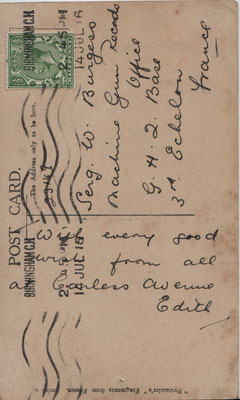 POST CARD.
The Address only to be here.
BIRMINGHAM.C.H.
2 45 PM
14 JUL 16
BIRMINGHAM.C.H.
2 45 PM
14 JUL 16
With every good
wish from all
at Earless Avenue
Edith
Serg. W. Burgess
Machine Gun Records
Office
G. H. Q. Base
3rd Echelon
France
"Bystander's" Fragments from France.